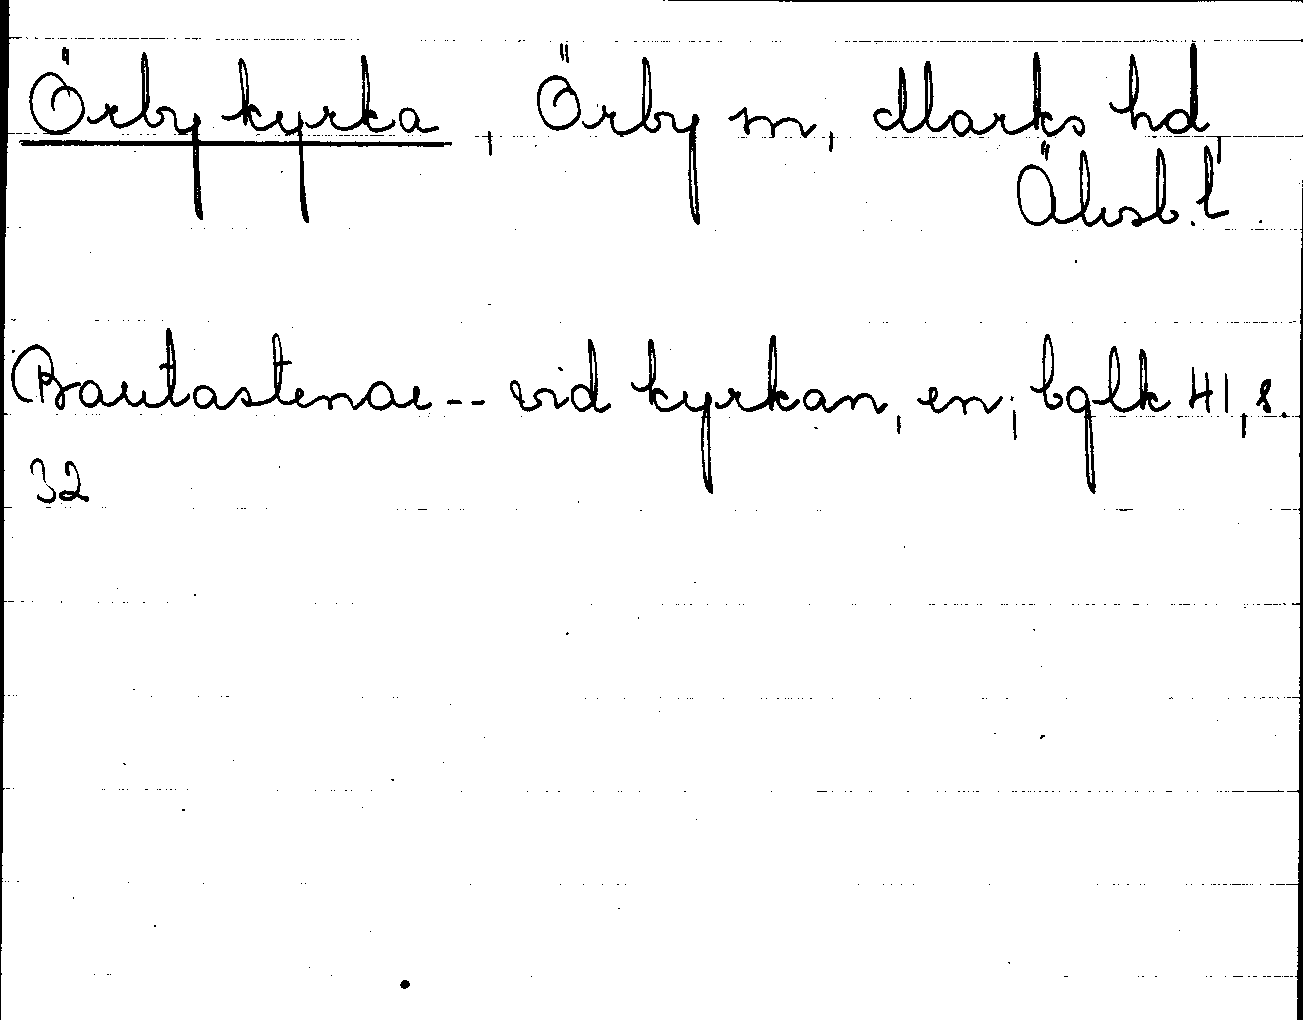 Örby kyrka, Örby sn, Marks hd,
Älvsb. l.
Bautastenar -- vid kyrkan, en; bglk 41, s.
32